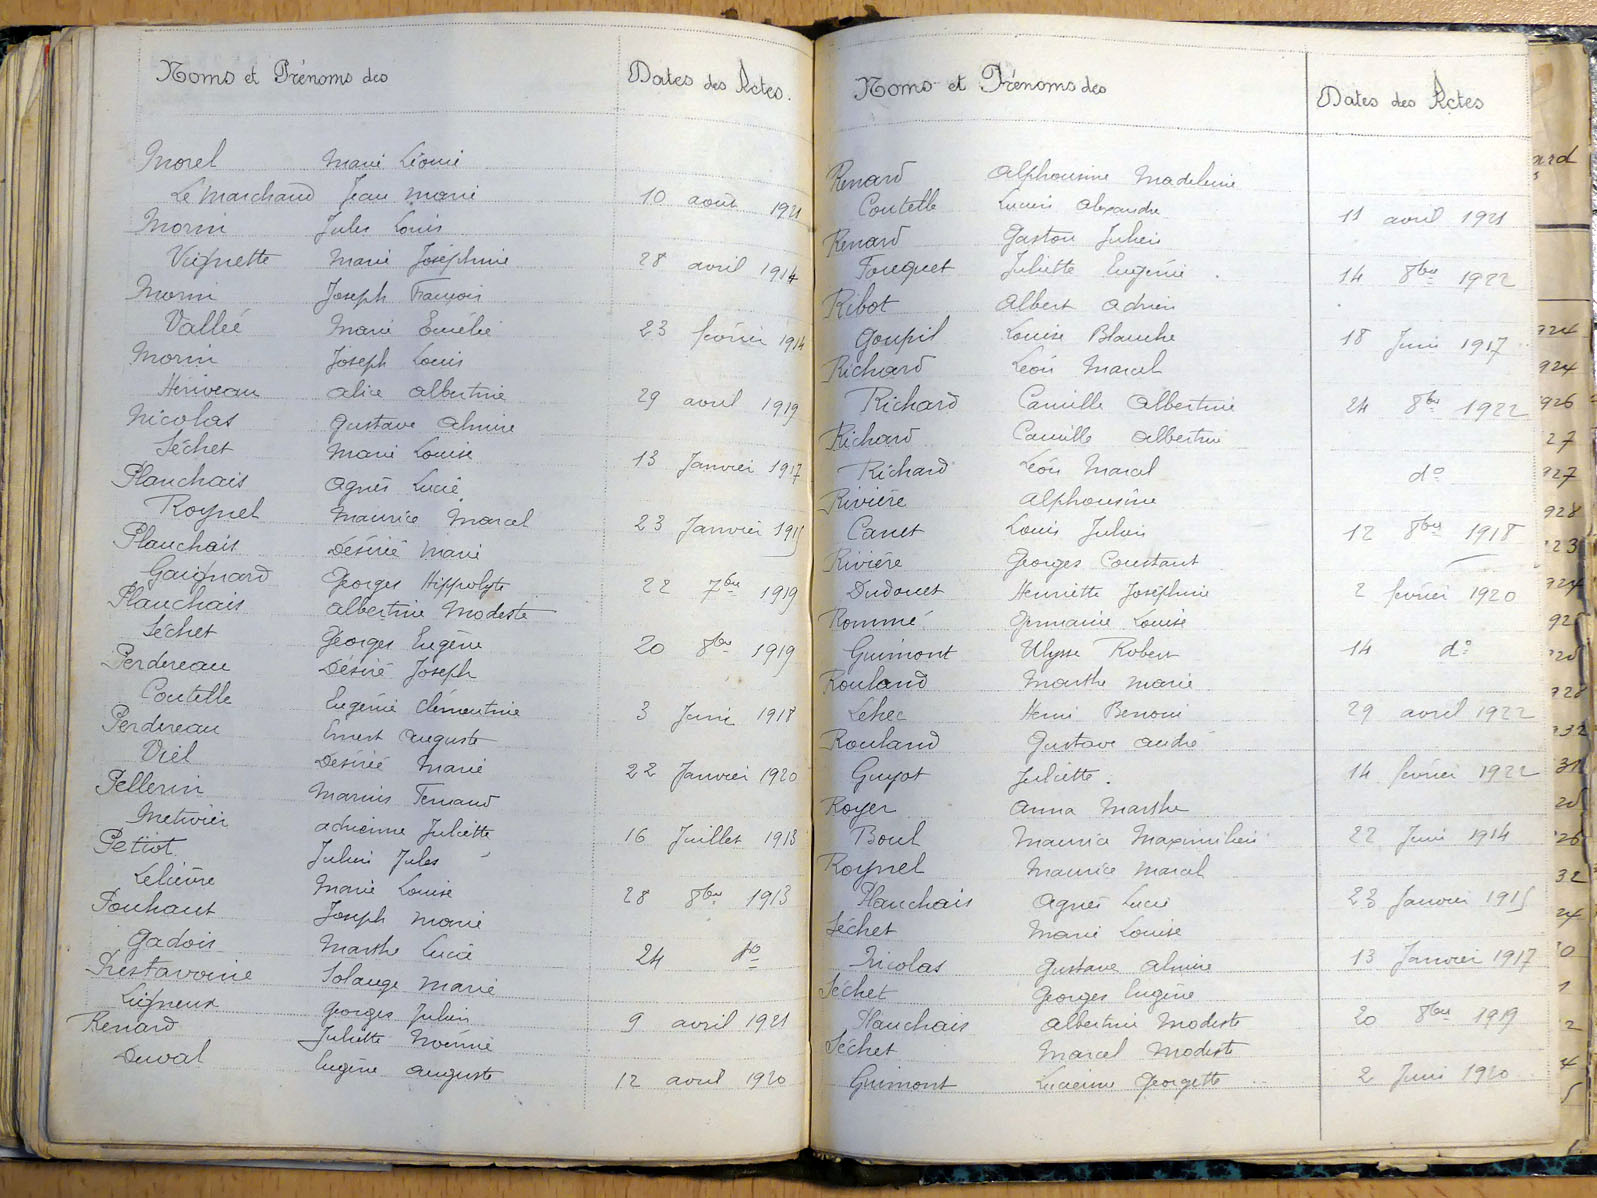 Noms et Prénoms des Dates des Actes.
Morel Marie Léonie
Le Marchand Jean Marie 10 août 1921
Morin Jules Louis
Vignette Marie Joséphine 28 avril 1914
Morin Joseph François
Vallée Marie Emélie 23 février 1914
Morin Joseph Louis
Heriveau Alice Albertine 29 avril 1919
Nicolas Gustave Almire
Séchet Marie Louise 13 Janvier 1917
Planchais Agnès Lucie
Roynel Maurice Marcel 23 Janvier 1915
Planchais Désirée Marie
Gaignard Georges Hippolyte 22 7bre 1919
Planchais Albertine Modeste
Séchet Georges Eugène 20 8bre 1919
Perdereau Désiré Joseph
Coutelle Eugénie Clémentine 3 Juin 1918
Perdereau Ernest Auguste
Viel Désirée Marie 22 Janvier 1920
Pellerin Marius Fernand
Metivier Adrienne Juliette 16 Juillet 1913
Petiot Julien Jules
Lelièvre Marie Louise 28 8bre 1913
Pouhaut Joseph Marie
Gadois Marthe Lucie 24 do
Prestavoine Solange Marie
Ligneux Georges Julien 9 avril 1921
Renard Juliette Noémie
Duval Eugène Auguste 12 avril 1920
Noms et Prénoms des Dates des Actes
Renard Alphonsine Madeleine
Coutelle Lucien Alexandre 11 avril 1921
Renard Gaston Julien
Fouquet Juliette Eugénie 14 8bre 1922
Ribot Albert Adrien
Goupil Louise Blanche 18 Juin 1917
Richard Léon Marcel
Richard Camille Albertine 24 8bre 1922
Richard Camille Albertine
Richard Léon Marcel do
Rivière Alphonsine
Canet Louis Julien 12 8bre 1918
Rivière Georges Constant
Dudouet Henriette Joséphine 2 février 1920
Rommé Germaine Louise
Guimont Ulysse Robert 14 do
Rouland Marthe Marie
Lehec Henri Benoni 29 avril 1922
Rouland Gustave André
Guyot Juliette. 14 février 1922
Royer Anna Marthe
Boul Maurice Maximilien 22 Juin 1914
Roynel Maurice Marcel
Planchais Agnès Lucie 23 Janvier 1915
Séchet Marie Louise
Nicolas Gustave Almire 13 Janvier 1917
Séchet Georges Eugène
Planchais Albertine Modeste 20 8bre 1919
Séchet Marcel Modeste
Guimont Lucienne Georgette 2 Juin 1920